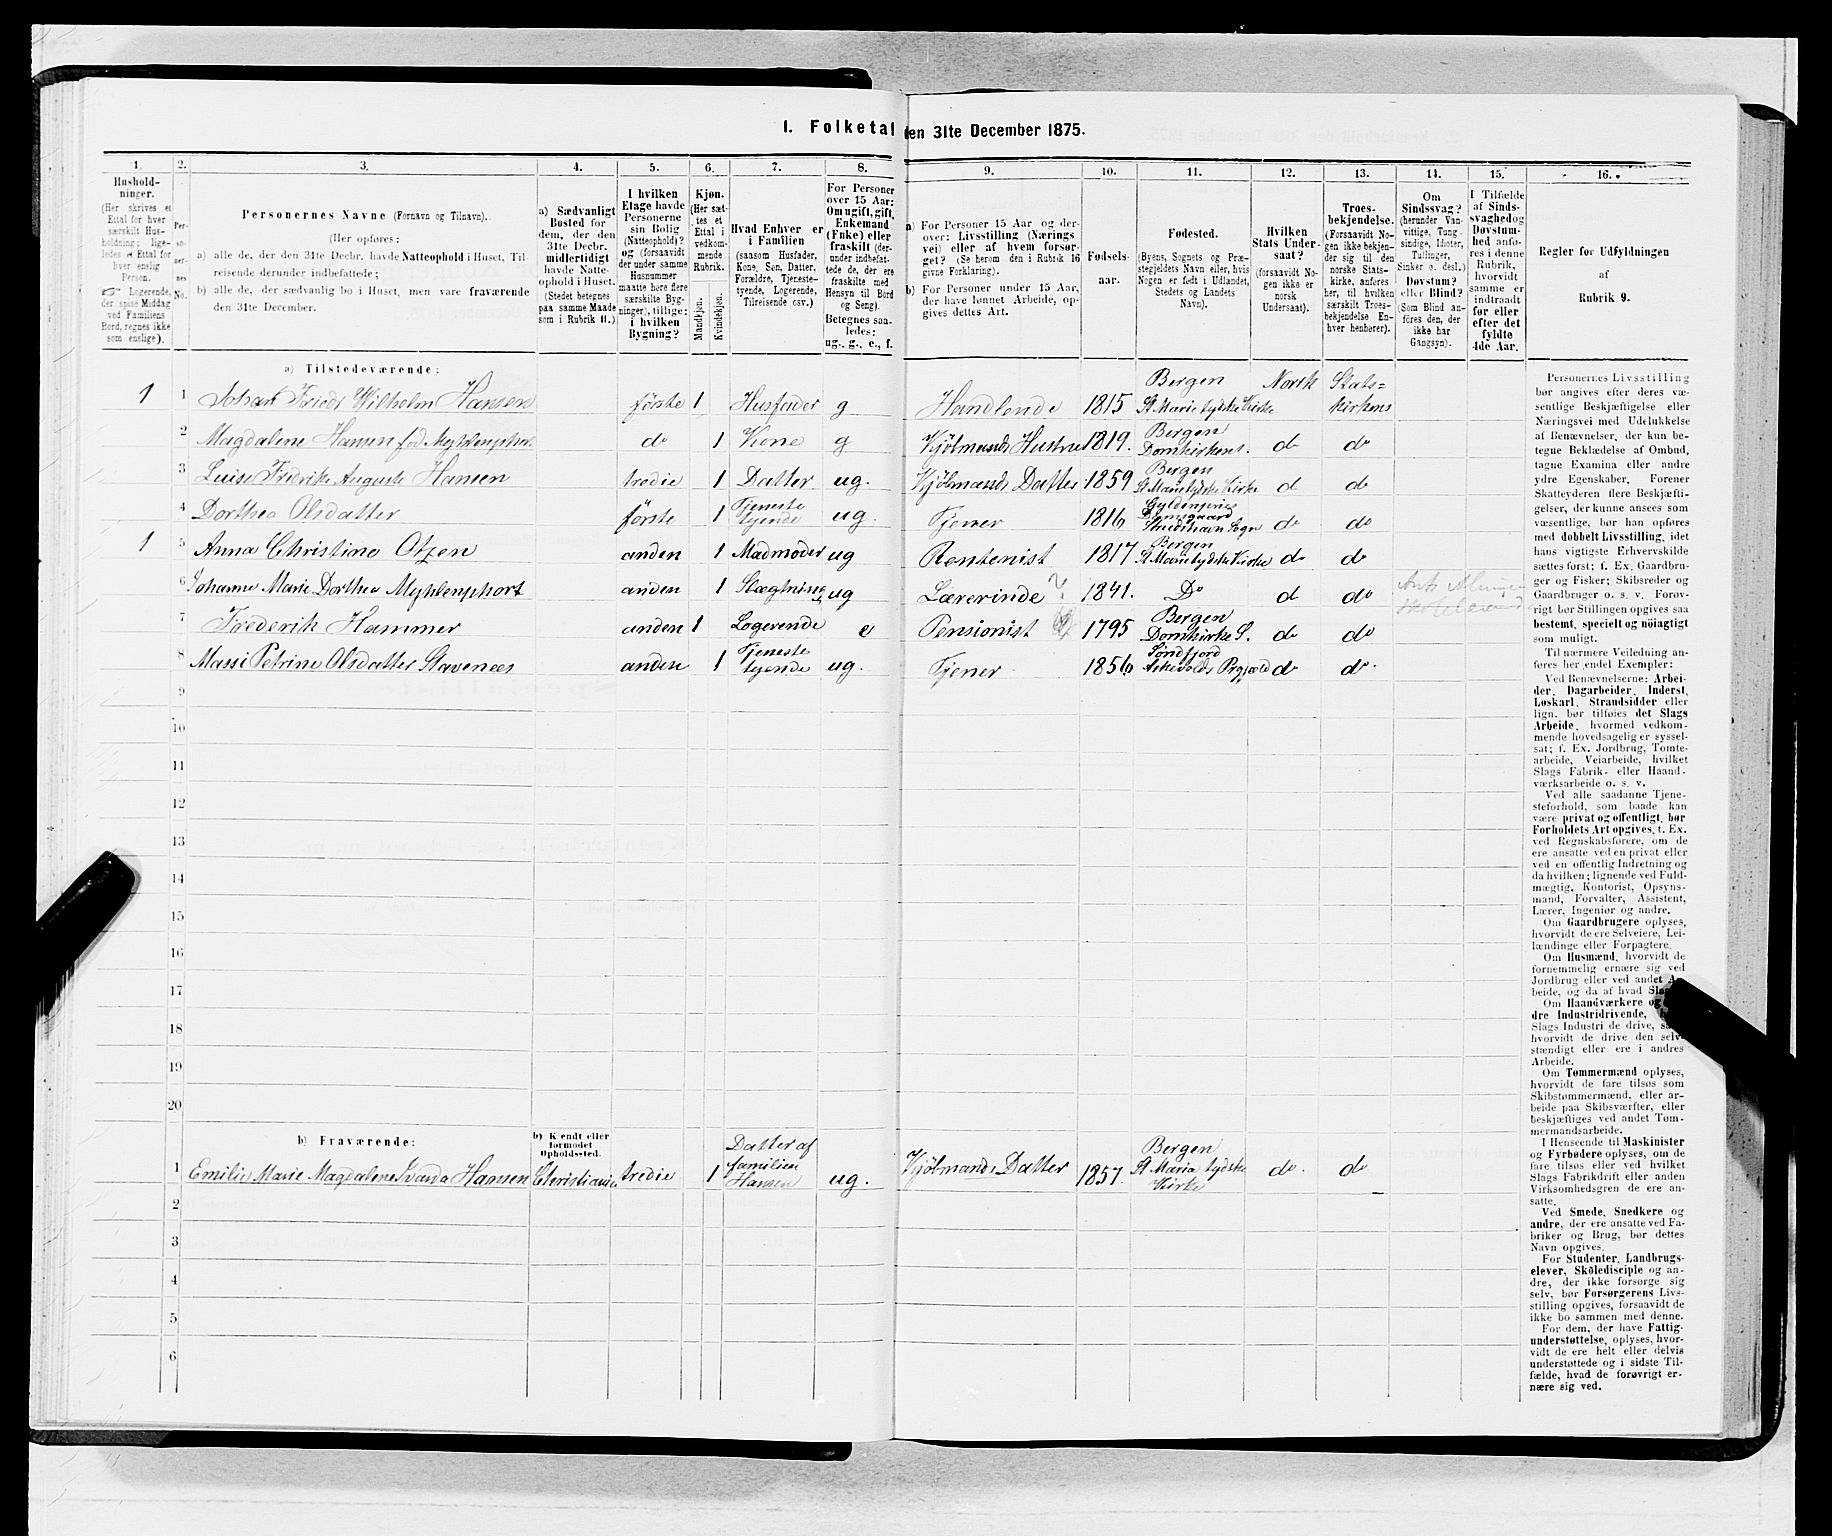 I. Folketal den 31te December 1875.
1. 2. 3. 4. 5. 6. 7. 8. 9. 10. 11. 12. 13. 14. 15. 16.
Hushold-
ninger.
(Her skrives et
Ettal for hver
særskilt Hus-
holdning; lige-
ledes et Ettal for
hver enslig
Person.
Logerende,
der spise Middag
ved Familiens
Bord, regnes ikke
som enslige).
Per-
so-
ner-
nes
No.
Personernes Navne (Fornavn og Tilnavn).
(Her opføres:
a) alle de, der den 31te Decbr. havde Natteophold i Huset, Til-
reisende derunder indbefattede;
b) alle de, der sædvanlig bo i Huset, men vare fraværende
den 31te December.
a) Sædvanligt
Bosted for
dem, der den
31te Decbr.
midlertidigt
havde Natte-
ophold i Huset.
(Stedet betegnes
paa samme Maade
som i Rubrik 11.)
I hvilken
Etage havde
Personerne
sin Bolig
(Natteophold)?
og (forsaavidt
der under samme
Husnummer
maatte høre flere
særskilte Byg-
ninger), tillige:
i hvilken
Bygning?
Kjøn.
(Her sæt-
tes et
Ettal i
vedkom-
mende
Rubrik.
Mandkjøn.
Kvindekjøn.
Hvad Enhver er
i Familien
(saasom Husfader,
Kone, Søn, Datter,
Forældre, Tjeneste-
tyende, Logerende,
Tilreisende osv.)
For Personer
over 15 Aar:
Om ugift, gift,
Enkemand
(Enke) eller
fraskilt (der-
under indbefat-
tede de, der ere
fraskilte med
Hensyn til Bord
og Seng).
Betegnes saa-
ledes:
ug., g., e., f.
a) For Personer 15 Aar og der-
over: Livsstilling (Nærings
vei) eller af hvem forsør-
get? (Se herom den i Rubrik 16
givne Forklaring).
b) For Personer under 15 Aar,
der have lønnet Arbeide, op-
gives dettes Art.
Fødsels-
aar.
Fødested.
(Byens, Sognets og Præ-
stegjeldets Navn eller, hvis
Nogen er født i Udlandet,
Stedets og Landets
Navn).
Hvilken
Stats Under-
saat?
(forsaavidt No-
gen ikke er
norsk
Undersaat).
Troes-
bekjendelse.
(Forsaavidt No-
gen ikke bekjen-
der sig til den
norske Stats-
kirke, anføres
her, til hvilken
særskilt Troes-
bekjendelse En-
hver henhører).
Om
Sindssvag?
(herunder Van-
vittige, Tung
sindige, Idioter,
Tullinger,
Sinker o. desl.)
Døvstum?
eller Blind?
(Som Blind an-
føres den, der
ikke har
Gangsyn).
I Tilfælde
af Sinds-
svaghed og
Døvstum-
hed anfø-
res i denne
Rubrik,
hvorvidt
samme er
indtraadt
før eller
efter det
fyldte
4de Aar.
Regler for Udfyldningen
af
Rubrik 9.
a) Tilstedeværende:
1 1 Johan Friedr Wilhelm Hansen første 1 Husfader g Handlende 1815 Bergen St Marie tydske Kirke Norsk Stats=kirkens
2 Magdalene Hansen fød do 1 Kone g Kjøbmands Hustru 1819. Bergen Domkirkens. do do
3 Luise Fredrike Auguste Hansen tredie 1 Datter ug. Kjøbmands Datter 1859 Bergen St Marie tydske Kirke d do
4 Dorthea Olsdatter første 1 Tjeneste tyende ug. Tjener 1816 do do
1 5 Anna Christine Otzen anden 1 Madmoder ug Rentenist 1817 Bergen St Marie tydske Kirke do do
6 Johanne Marie Dorthea anden 1 Slægtning ug Lærerinde ? 1841. Do d do
7 Frederik Hammer anden 1 Logerende e Pensionist 1795 Bergen Domkirke S. do do
8 Massi Petrine Olsdatter Stavenees anden 1 Tjeneste tyende ug. Tjener 1856 Søndfjord Askevolds do do.
9
10
11
12
13
14
15
16
17
18
19
20
b) Fraværende:
b) Kjendt eller
formodet
Opholdssted.
1 Emilie Marie Magdalene Hansen Christiania tredie 1 Datter af familien Hansen ug. Kjøbmands Datter 1857. Bergen St Maria tydske Kirke do. do
2
3
4
5
6
Personernes Livsstilling
bør angives efter deres væ-
sentlige Beskjæftigelse eller
Næringsvei med Udelukkelse
af Benævnelser, der kun be-
tegne Beklædelse af Ombud,
tagne Examina eller andre
ydre Egenskaber. Forener
Skatteyderen flere Beskjæfti-
gelser, der kunne ansees som
væsentlige, bør han opføres
med dobbelt Livsstilling, idet
hans vigtigste Erhvervskilde
sættes først; f. Ex. Gaardbru-
ger og Fisker; Skibsreder og
Gaardbruger o. s. v. Forøv-
rigt bør Stillingen opgives saa
bestemt, specielt og nöiagtigt
som muligt.
Til nærmere Veiledning an-
føres her endel Exempler:
Ved Benævnelserne: Arbei-
der, Dagarbeider, Inderst,
Løskarl, Strandsidder eller
lign. bør tilføies det Slags
Arbeide, hvormed vedkom-
mende hovedsagelig er syssel-
sat; f. Ex. Jordbrug, Tomte-
arbeide, Veiarbeide, hvilket
Slags Fabrik- eller Haand-
værksarbeide o. s. v.
Ved alle saadanne Tjene-
steforhold, som baade kan
være privat og offentligt, bør
Forholdets Art opgives, t. Ex.
ved Regnskabsførere, om de
ere ansatte ved en privat eller
ved en offentlig Indretning og
da hvilken; lignende ved Fuld-
mægtig, Kontorist, Opsyns-
mand, Forvalter, Assistent,
Lærer, Ingeniør og andre.
Om Gaardbrugere oplyses,
hvorvidt de ere Selveiere, Lei-
lændinge eller Forpagtere.
Om Husmænd, hvorvidt de
fornemmelig ernære sig ved
Jordbrug eller ved andet Ar-
beide, og da af hvad Slags
Om Haandværkere og
dre Industridrivende,
Slags Industri de drive, samt
hvorvidt de drive den selv-
stændigt eller ere i andres
Arbeide.
Om Tømmermænd oplyses,
hvorvidt de fare tilsøs som
Skibstømmermænd, eller ar-
beide paa Skibsværfter, eller
beskjæftiges ved andet Tøm-
mermandsarbeide.
I Henseende til Maskinister
og Fyrbødere oplyses, om de
fare tilsøs eller ved hvilket
Slags Fabrikdrift eller anden
Virksomhedsgren de ere an-
satte.
Ved Smede, Snedkere og
andre, der ere ansatte ved Fa-
briker og Brug, bør dettes
Navn opgives.
For Studenter, Landbrugs-
elever, Skoledisciple og an-
dre, der ikke forsørge sig
selv, bør Forsørgerens Livs-
stilling opgives, forsaavidt de
ikke bo sammen med denne.
For dem, der have Fattig-
understøttelse, oplyses, hvor-
vidt de ere helt eller delvis
understøttede og i sidste Til-
fælde, hvad de forøvrigt er-
nære sig ved.